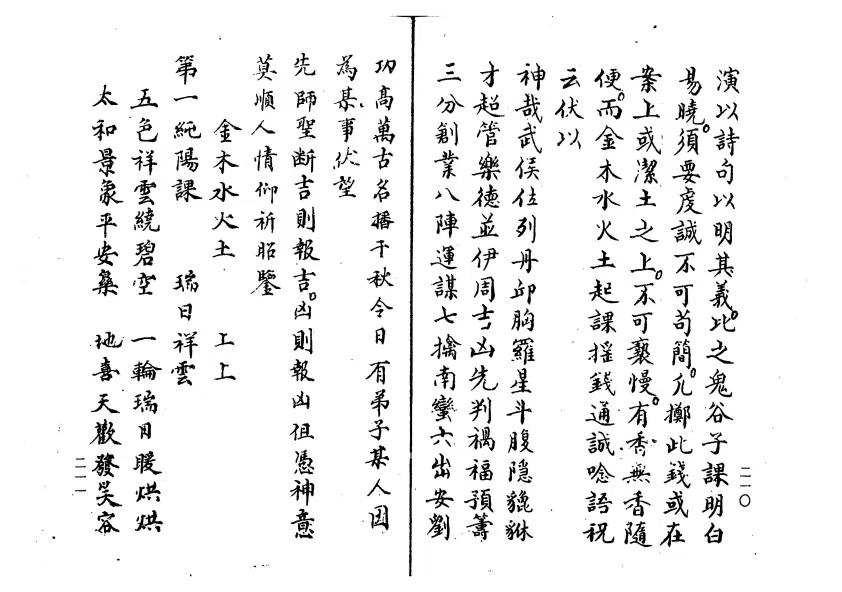 演以詩句以明其義。比之鬼谷子課明白
易曉。須要虔誠不可苟簡。凡擲此錢或在
案上或潔土之上。不可褻慢。有香無香隨
便。而金木水火土起課搖錢通誠唸語祝
云伏以
神哉武侯位列丹邱胸羅星斗腹隱貔貅
才超管樂德並伊周吉凶先判禍福預籌
三分創業八陣運謀七擒南蠻六出安劉
二一〇
功高萬古名播千秋今日有弟子某人因
為某事伏望
先師聖斷吉則報吉。凶則報凶但憑神意
莫順人情仰祈昭鑒
金木水火土 上上
第一純陽課 瑞日祥雲
五色祥雲繞碧空 一輪瑞日暖烘烘
太和景象平安集 地喜天歡發笑容
二一一